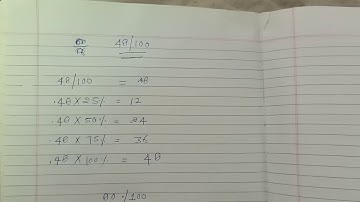 48/100
48/100 = 48
.48 X 25% = 12
.48 X 50% = 24
.48 X 75% = 36
.48 X 100% = 48
80 ./100